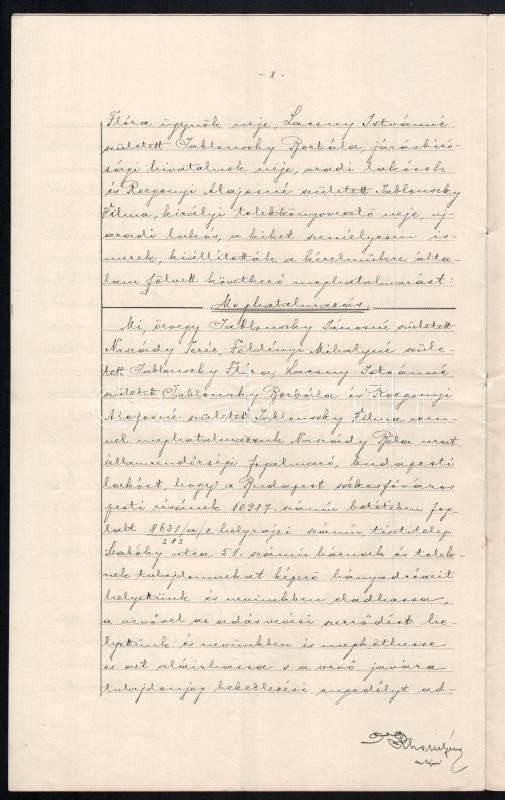 - 8 -
Flóra ügynök neje, Lacsny Istvánné
született Jablonszky Borbála, járásbiró-
sági hivatalnok neje, aradi lakósok
és Rozgonyi Alajosné született Jablonszky
Vilma, királyi telekkönyvvezető neje, uj-
aradi lakós, a kiket személyesen is-
merek, kiállitották a kérelmükre álta-
lam fölvett következő meghatalmazást:
Meghatalmazás.
Mi, özvegy Jablonszky Jánosné született
Naszády Teréz, Földényi Mihályné szüle-
tett Jablonszky Flóra, Lacsny Istvánné
született Jablonszky Borbála és Rozgonyi
Alajosné született Jablonszky Vilma ezen-
nel meghatalmazzuk Naszády Béla urat
államrendőrségi fogalmazó, budapesti
lakóst, hogy a Budapest székesfőváros
pesti részének 10987. számú betétében fog-
lalt 8631/a/1 helyrajzi számú, tisztitelep
282
Szabóky utca 51. számú háznak és telek-
nek tulajdonunkat képező hányadrészeit
helyettünk és nevünkben eladhassa,
a vevővel az adásvevési szerződést he-
lyettünk és nevünkben is megköthesse
és azt aláirhassa s a vevő javára
tulajdonjog bekeblezési engedélyt ad-